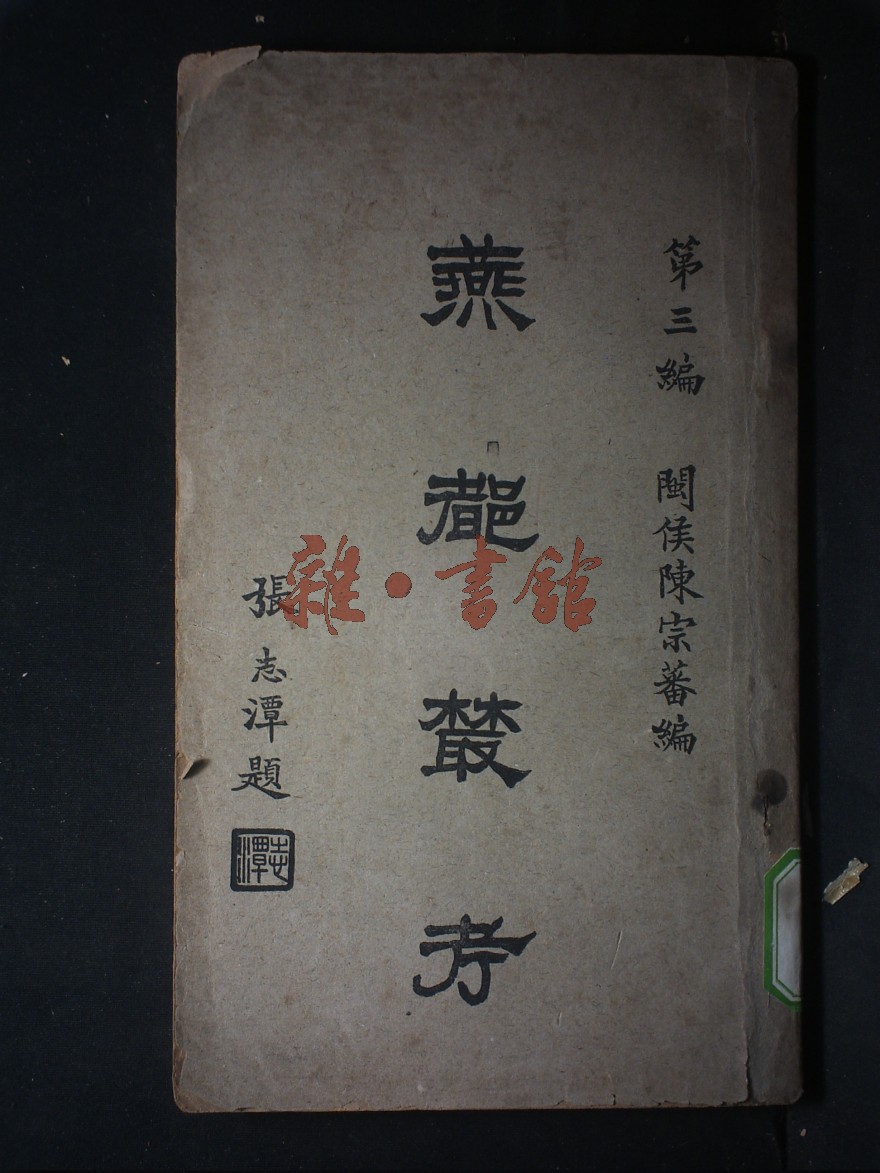 第三編 閩侯陳宗蕃編
燕都叢考
張志潭題
志潭
雜·書館